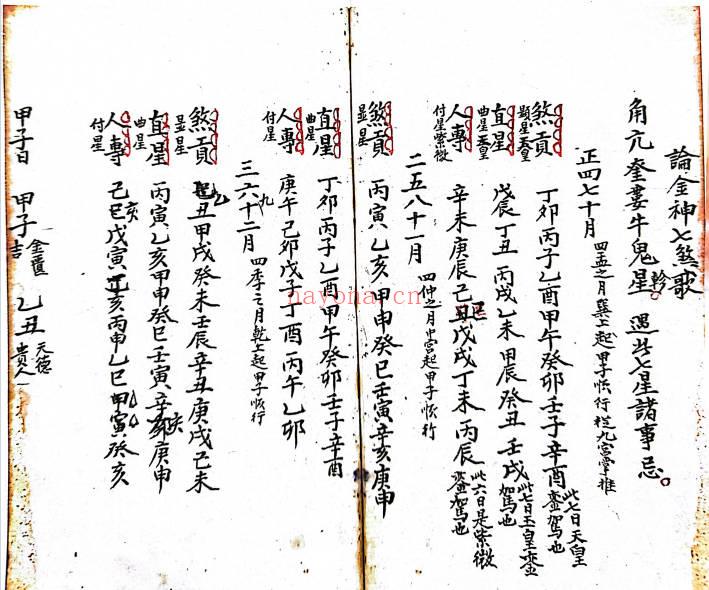 論金神七煞歌
角亢奎婁牛鬼星軫。遇此七星諸事忌。
正四七十月 四孟之月巽上起甲子順行從九宮掌推
煞貢 顯星 天皇 丁卯丙子乙酉甲午癸卯壬子辛酉 此七日天皇鑾駕也
直星 曲星 玉皇 戊辰丁丑丙戌乙未甲辰癸丑壬戌 此七日玉皇鑾駕也
人專 付星 紫微 辛未庚辰己丑戊戌丁未丙辰 此六日是紫微鑾駕也
二五八十一月 四仲之月中宮起甲子順行
煞貢 显星 丙寅乙亥甲申癸巳壬寅辛亥庚申
直星 曲星 丁卯丙子乙酉甲午癸卯壬子辛酉
人專 付星 庚午己卯戊子丁酉丙午乙卯
三六九十二月 四季之月乾上起甲子順行
煞貢 显星 乙丑甲戌癸未壬辰辛丑庚戌己未
直星 曲星 丙寅乙亥甲申癸巳壬寅辛亥庚申
人專 付星 己巳戊寅丁亥丙申乙巳甲寅癸亥
甲子日 甲子 金匱 吉 乙丑 天德 貴人
nayona.cn